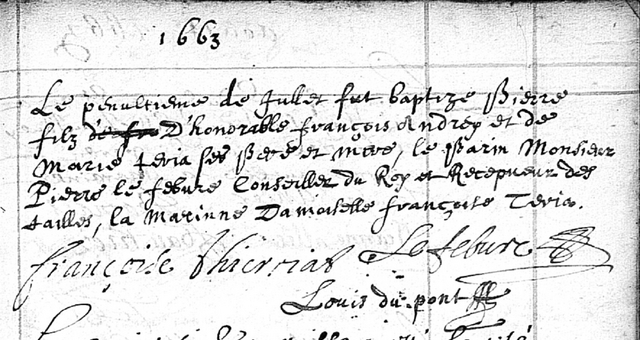 1663
Le penultieme de Jullet fut baptize Pierre
filz D'honorable françois Andrey et de
Marie tevia ses Pere et mere, le Parin Monsieur
Pierre le febure Conseiller du Roy et Recepueur des
tailles, la Marinne Damoiselle françoise Tevia.
françoise Lefebure
Louis du pont